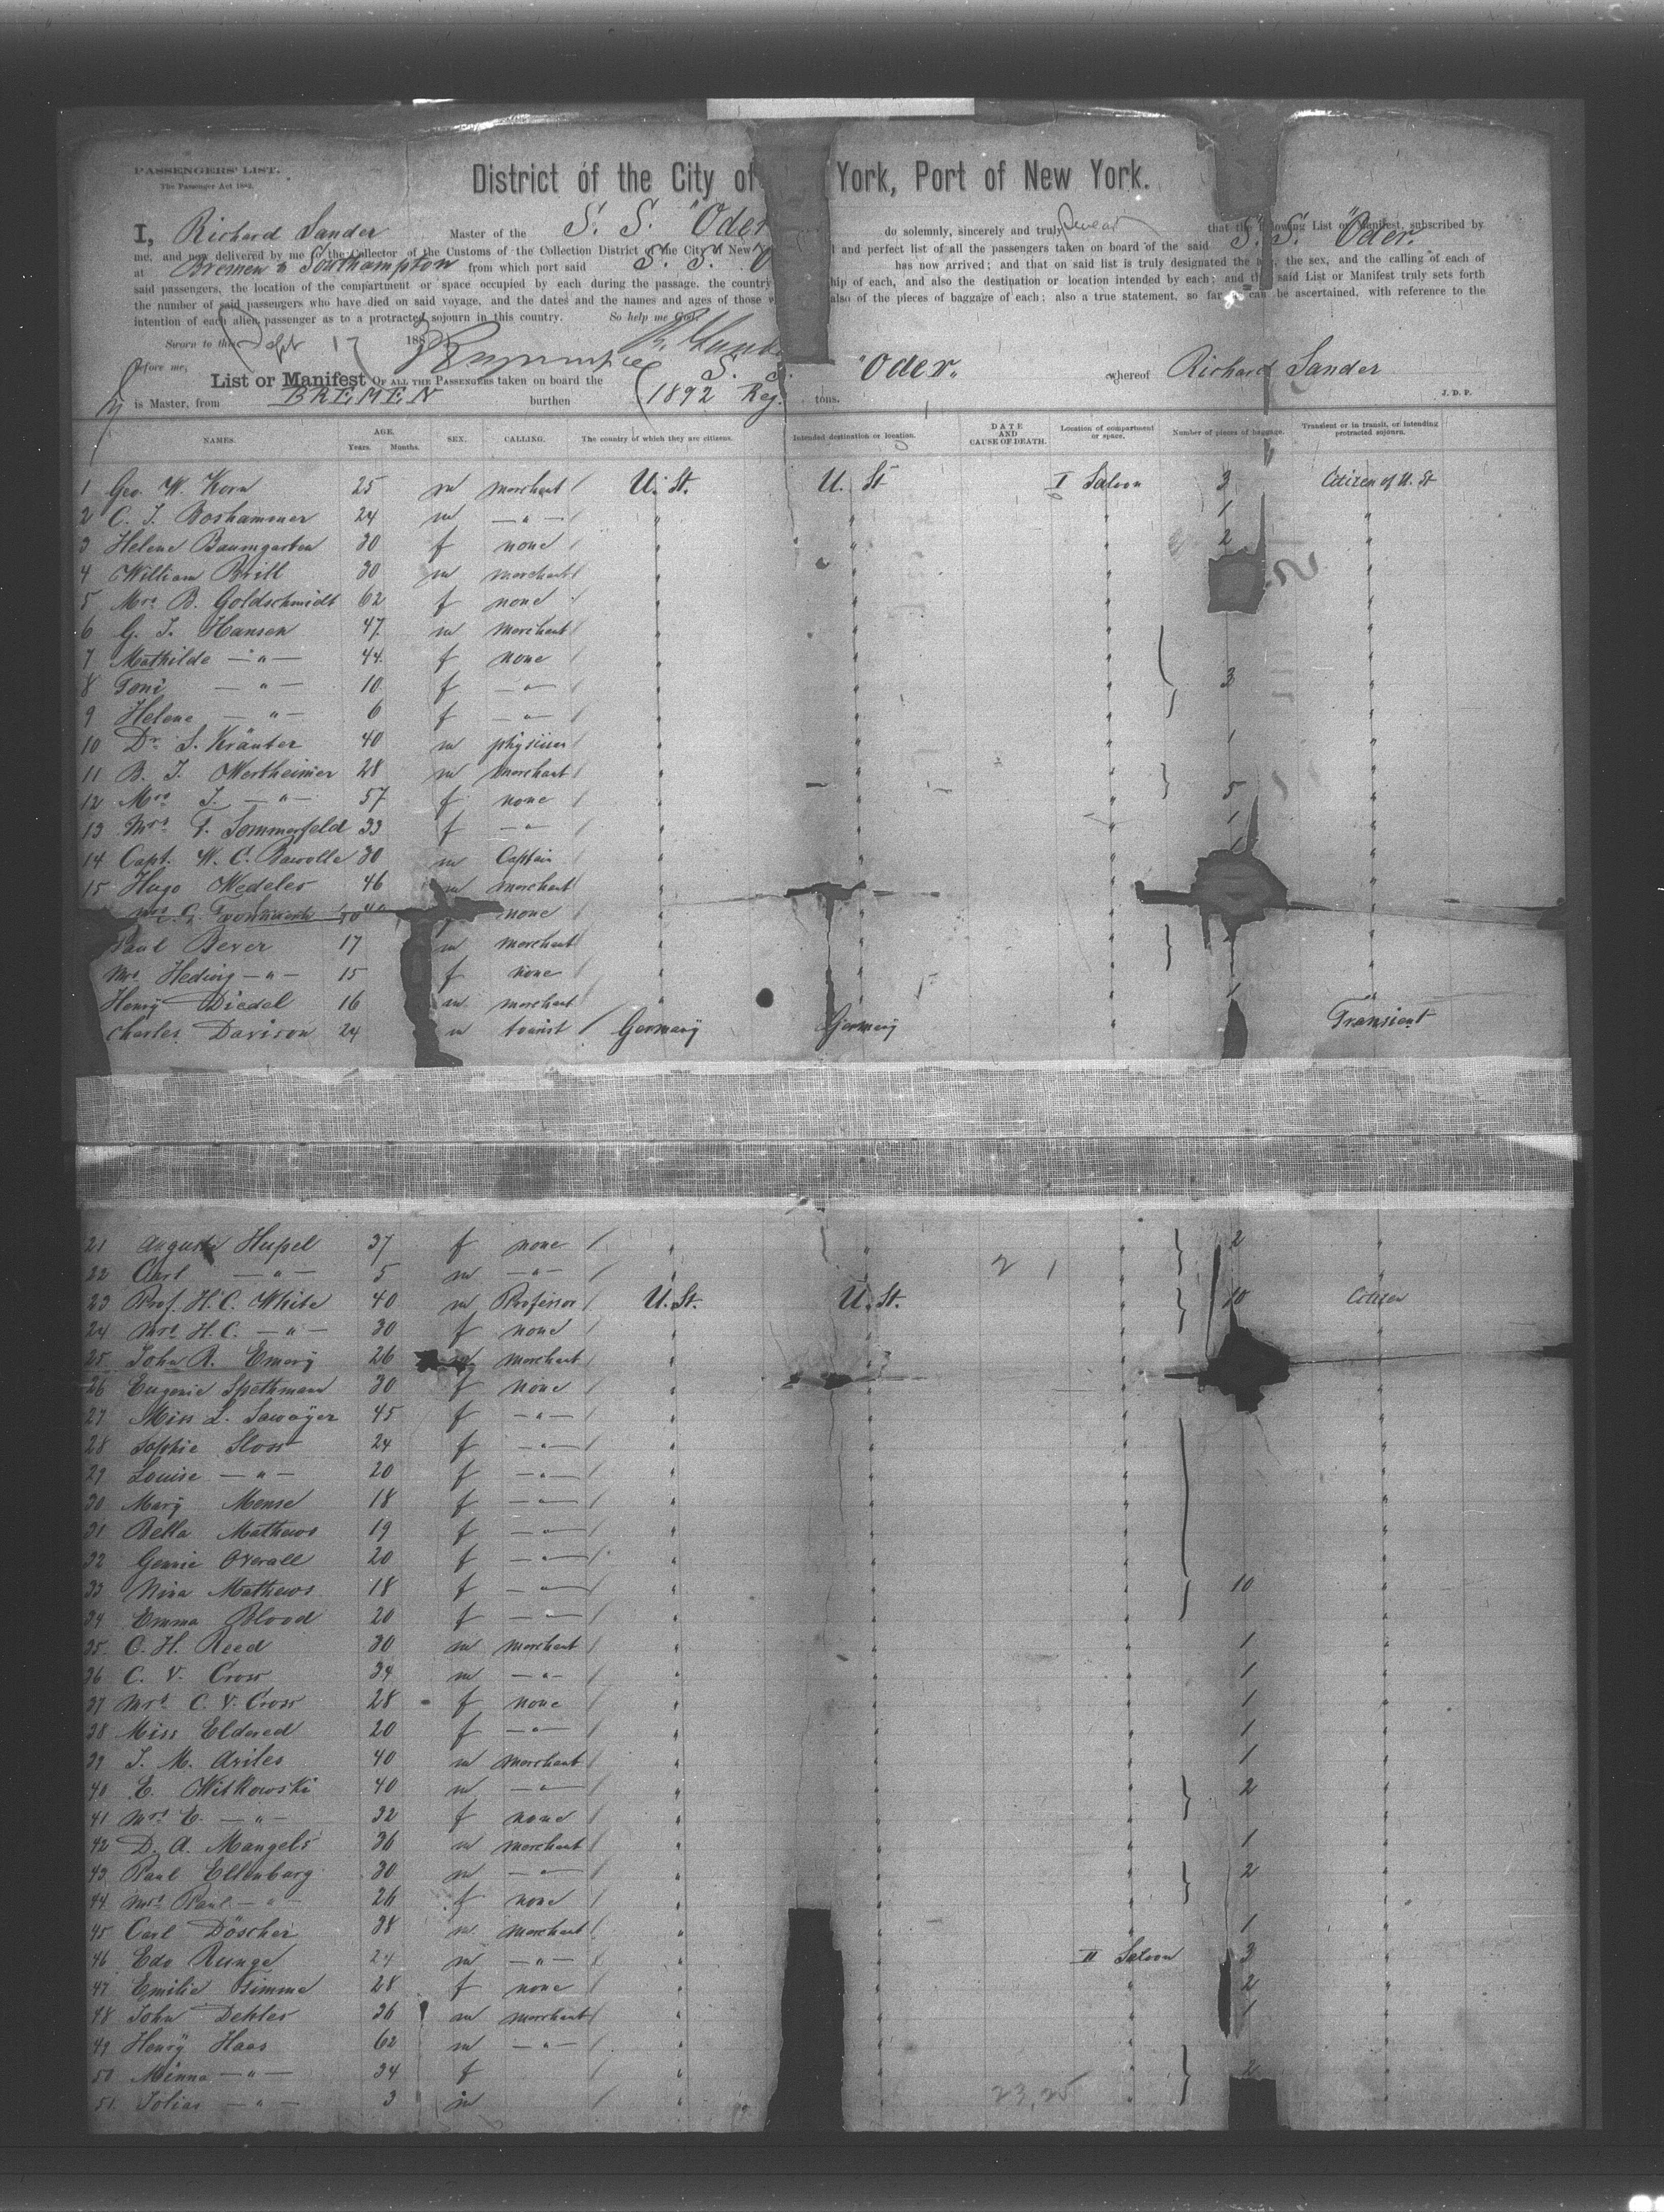 PASSENGERS' LIST.
The Passenger Act 1882.
District of the City of York, Port of New York.
I, Richard Sander Master of the S. S. "Oder do solemnly, sincerely and truly swear that the following List or Manifest, subscribed by
me, and now delivered by me to the Collector of the Customs of the Collection District of the City of New and perfect list of all the passengers taken on board of the said S. S. "Oder.
at Bremen & Southampton from which port said S. S. O has now arrived; and that on said list is truly designated the the sex, and the calling of each of
said passengers, the location of the compartment or space occupied by each during the passage, the country hip of each, and also the destination or location intended by each; and said List or Manifest truly sets forth
the number of said passengers who have died on said voyage, and the dates and the names and ages of those also of the pieces of baggage of each; also a true statement, so far can be ascertained, with reference to the
intention of each alien passenger as to a protracted sojourn in this country. So help me God
Sworn to this Sept 17 188
Before me,
List or Manifest OF ALL THE PASSENGERS taken on board the S. S. "Oder. whereof Richard Sander
is Master, from BREMEN burthen 1892 Reg. tons. J. D. P.
NAMES. AGE. Years. Months. SEX. CALLING. The country of which they are citizens. Intended destination or location. DATE AND CAUSE OF DEATH. Location of compartment or space. Number of pieces of baggage. Transient or in transit, or intending protracted sojourn.
1 Geo. W. Korn 25 m merchant U. St. U. St I Saloon 3 Citizen of U. St
2 C. J. Boshammer 24 m —"— " " " 1 "
3 Helene Baumgarten 30 f none " " " 2 "
4 William Brill 30 m merchant " " " "
5 Mrs B. Goldschmidt 62 f none " " " "
6 G. J. Hansen 47 m merchant " " " "
7 Mathilde —"— 44 f none " " " "
8 Toni —"— 10 f —"— " " " 3 "
9 Helene —"— 6 f —"— " " " "
10 Dr. S. Kräuter 40 m " " " 1 "
11 B. J. Wertheimer 28 m merchant " " " "
12 Mrs J. —"— 57 f none " " " 5 "
13 Mrs F. Sommerfeld 33 f —"— " " " 1 "
14 Capt. W. C. 30 m Captain " " " "
15 Hugo Wedeles 46 m merchant " " " "
Mrs G. none " " " "
Paul Bexer 17 m merchant " " " "
Mrs Hedwig —"— 15 f none " " " "
Henry Diedel 16 m merchant " " " 1 "
Charles Davison 24 m tourist Germany Germany " Transient
21 Auguste Hupel 37 f none " " " 2 "
22 Carl —"— 5 m —"— " " " "
23 Prof. H. C. White 40 m Professor U. St. U. St. " 10 Citizen
24 Mrs H. C. —"— 30 f none " " " "
25 John R. Emery 26 m merchant " " " "
26 Eugenie Spethmann 30 f none " " " "
27 Miss L. Sawoyer 45 f —"— " " " "
28 Sophie Sloss 24 f —"— " " " "
29 Louise —"— 20 f —"— " " " "
30 Mary Mense 18 f —"— " " " "
31 Bella Mathews 19 f —"— " " " "
32 Gennie Overall 20 f —"— " " " "
33 Nina Mathews 18 f —"— " " " 10 "
34 Emma Blood 20 f —"— " " " "
35 C. H. Reed 30 m merchant " " " 1 "
36 C. V. Cross 34 m —"— " " " 1 "
37 Mrs C. V. Cross 28 f none " " " 1 "
38 Miss Eldered 20 f —"— " " " 1 "
39 J. M. Ariles 40 m merchant " " " 1 "
40 E. Witkowski 40 m —"— " " " 2 "
41 Mrs E. —"— 32 f none " " " "
42 D. A. Mangels 36 m merchant " " " 1 "
43 Paul Ellenburg 30 m —"— " " " 2 "
44 Mrs Paul —"— 26 f none " " " "
45 Carl Döscher 38 m merchant " " " 1 "
46 Edo Runge 24 m —"— " " II Saloon 3 "
47 Emilie Timme 28 f none " " " 2 "
48 John Dehles 36 m merchant " " " 1 "
49 Henry Haas 62 m —"— " " " "
50 Minna —"— 34 f " " " 2 "
51 Tobias —"— 3 m " " " "